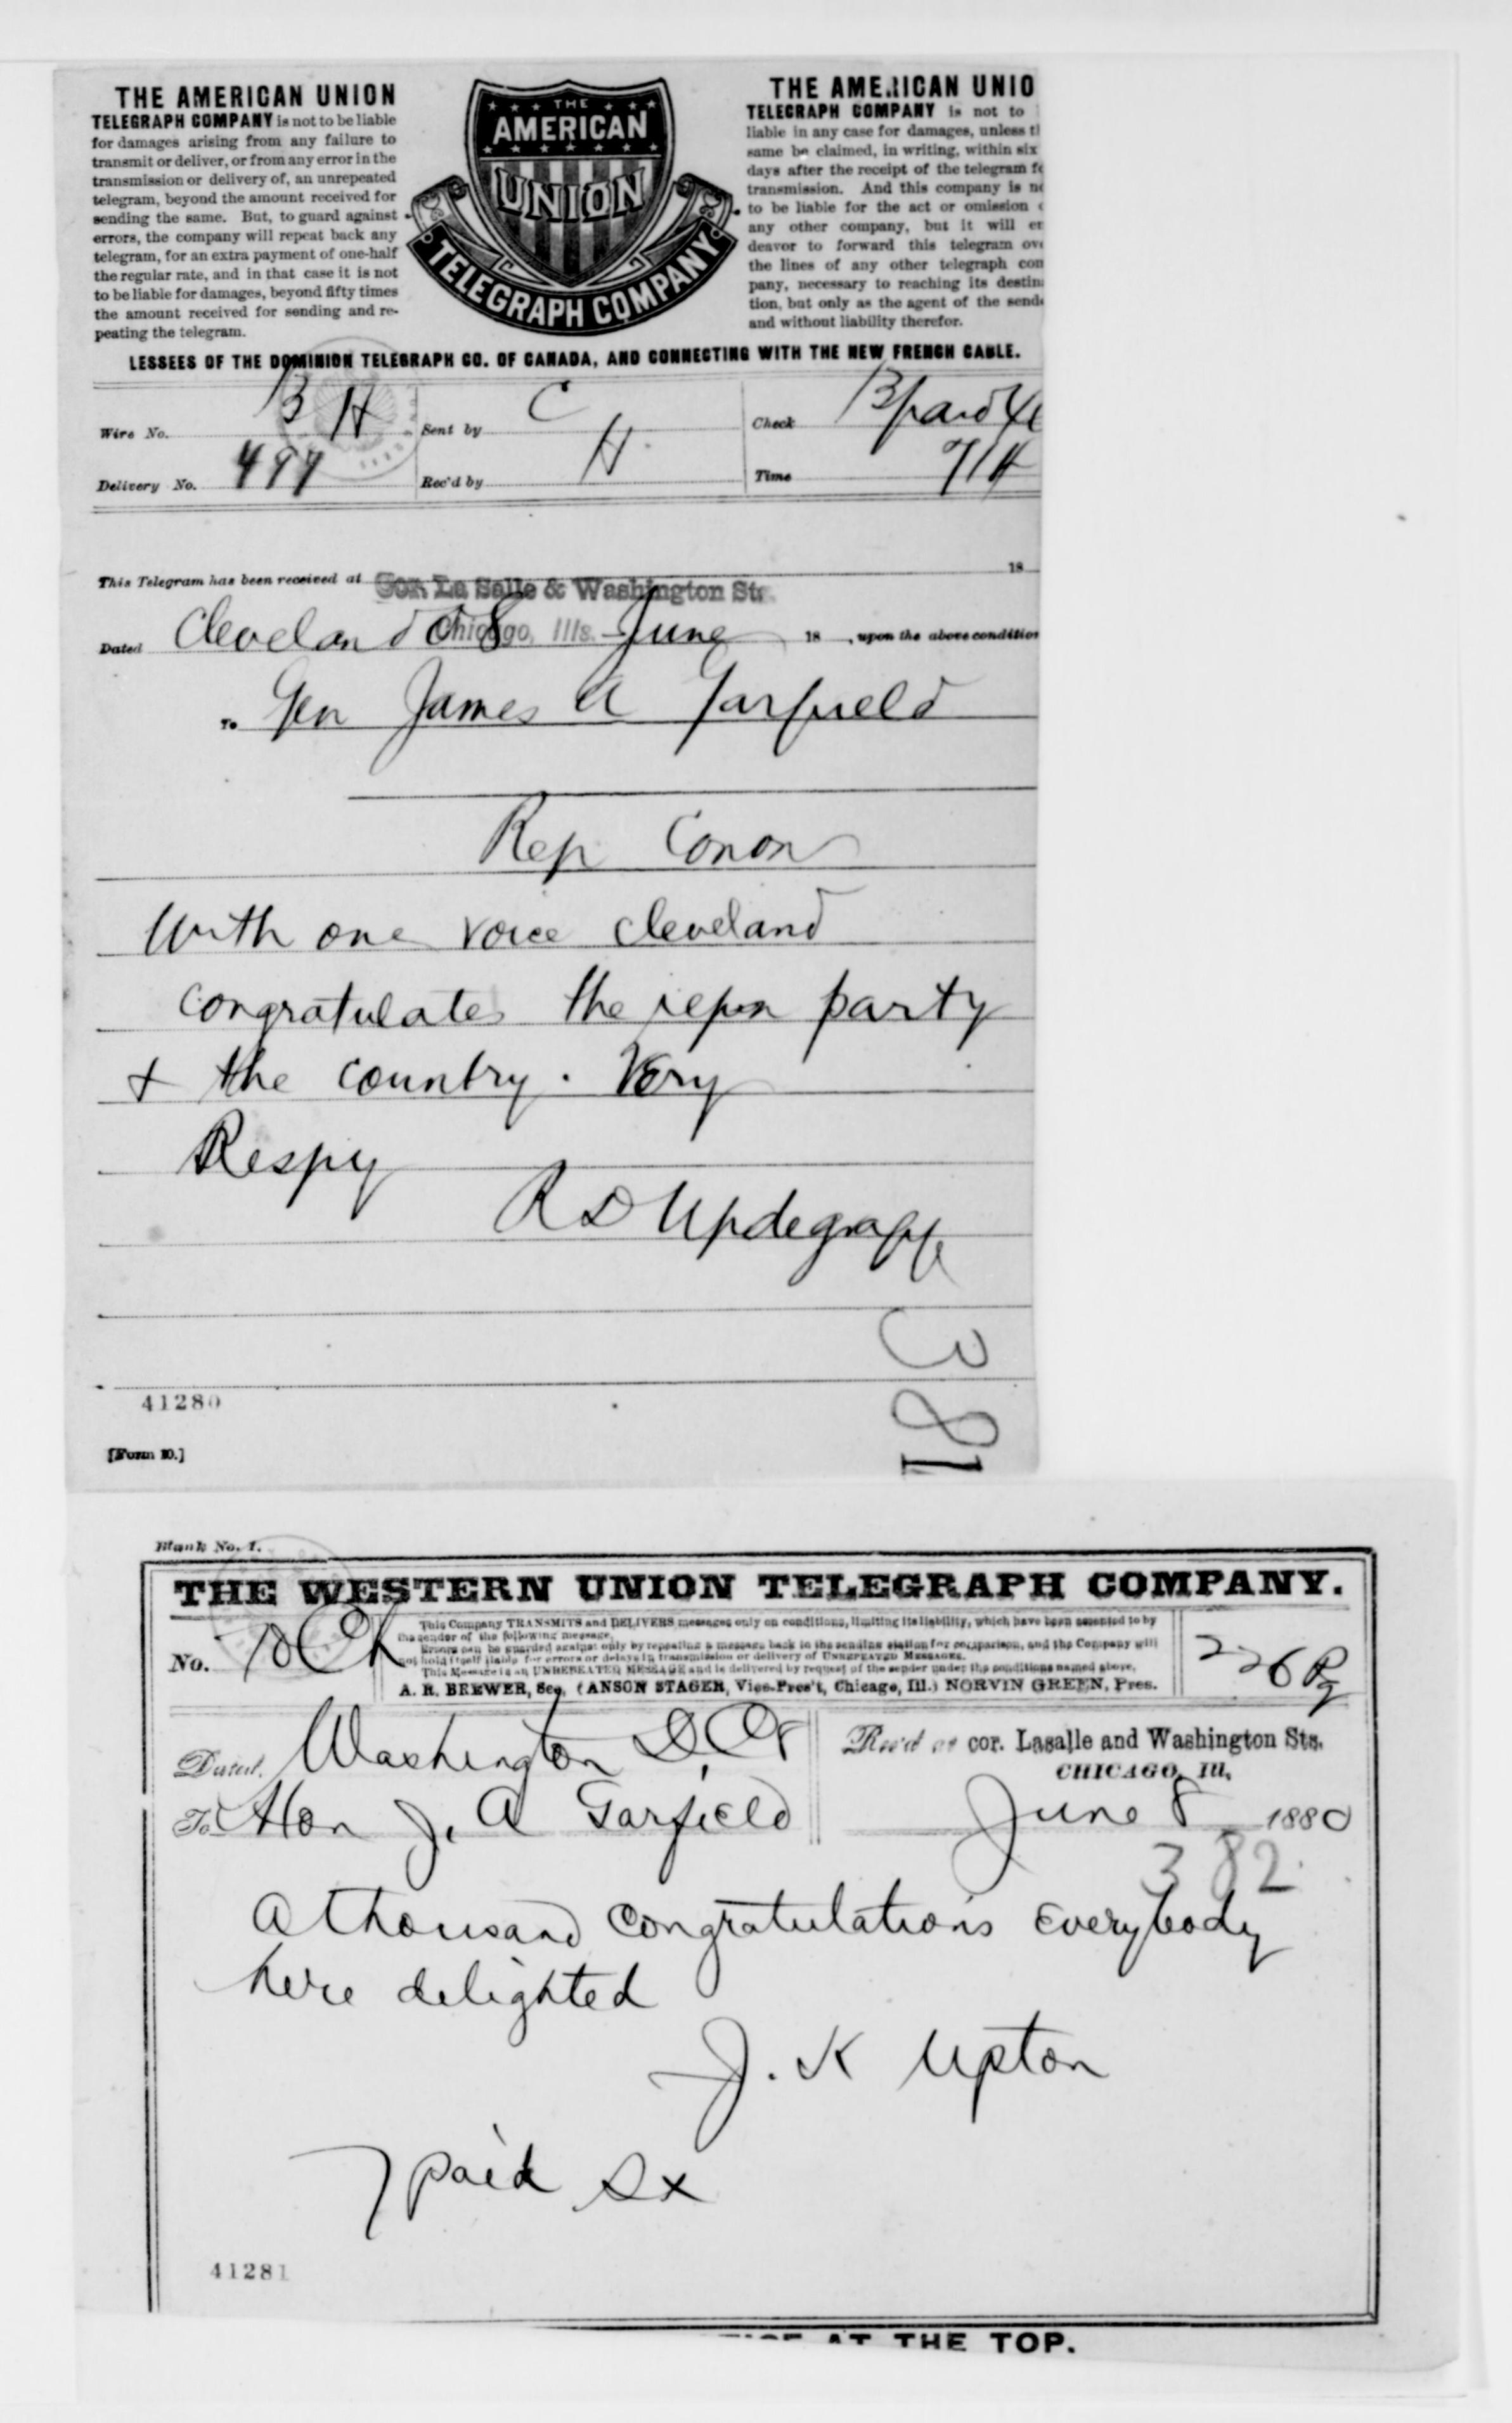 THE AMERICAN UNION
TELEGRAPH COMPANY is not to be liable
for damages arising from any failure to
transmit or deliver, or from any error in the
transmission or delivery of, an unrepeated
telegram, beyond the amount received for
sending the same. But, to guard against
errors, the company will repeat back any
telegram, for an extra payment of one-half
the regular rate, and in that case it is not
to be liable for damages, beyond fifty times
the amount received for sending and re-
peating the telegram.
THE
AMERICAN
UNION
TELEGRAPH COMPANY
THE AMERICAN UNIO
TELEGRAPH COMPANY is not to
liable in any case for damages, unless t
same be claimed, in writing, within six
days after the receipt of the telegram f
transmission. And this company is n
to be liable for the act or omission
any other company, but it will e
deavor to forward this telegram ov
the lines of any other telegraph com
pany, necessary to reaching its destin
tion, but only as the agent of the send
and without liability therefor.
LESSEES OF THE DOMINION TELEGRAPH CO. OF CANADA, AND CONNECTING WITH THE NEW FRENCH CABLE.
Wire No. B H Sent by C Check 13 paid
Delivery No. 497 Rec'd by H Time 714
This Telegram has been received at Cor. La Salle & Washington Sts. 18
Chicago, Ills.
Dated Cleveland O 8 June 18 , upon the above condition
To Gen James A Garfield
Rep Conon
With one voice cleveland
congratulates the repn party
& the country. Very
Respy
R D Updegraff
381
41280
[Form 10.]
Blank No. 1.
THE WESTERN UNION TELEGRAPH COMPANY.
This Company TRANSMITS and DELIVERS messages only on conditions, limiting its liability, which have been assented to by
the sender of the following message.
Errors can be guarded against only by repeating a message back to the sending station for comparison, and the Company will
not hold itself liable for errors or delays in transmission or delivery of UNREPEATED MESSAGES.
This Message is an UNREPEATED MESSAGE and is delivered by request of the sender under the conditions named above.
A. R. BREWER, Sec. (ANSON STAGER, Vice-Pres't, Chicago, Ill.) NORVIN GREEN, Pres.
No.
226
Dated, Washington D,C 8
Rec'd at cor. Lasalle and Washington Sts.
CHICAGO, Ill,
To Hon J. A Garfield
June 8 1880
382
A thousand congratulations everybody
here delighted
J. K Upton
7 paid
41281
AT THE TOP.